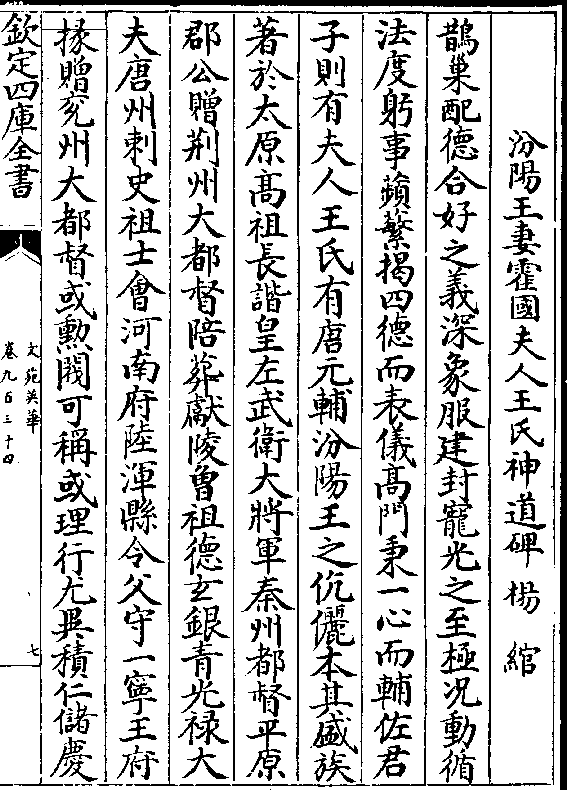 汾陽王妻霍國夫人王氏神道碑 楊綰
鵲巢配德合好之義深象服建封寵光之至極况動循
法度躬事蘋蘩揭四德而表儀髙門秉一心而輔佐君
子則有夫人王氏有唐元輔汾陽王之伉儷本其盛族
著於太原髙祖長諧皇左武衛大將軍秦州都督平原
郡公贈荆州大都督陪葬獻陵曽祖德玄銀青光禄大
夫唐州刺史祖士會河南府陸渾縣令父守一寧王府
掾贈兖州大都督或勲閥可稱或理行尤異積仁儲慶
欽定四庫全書
文苑英華
卷九百三十四
七